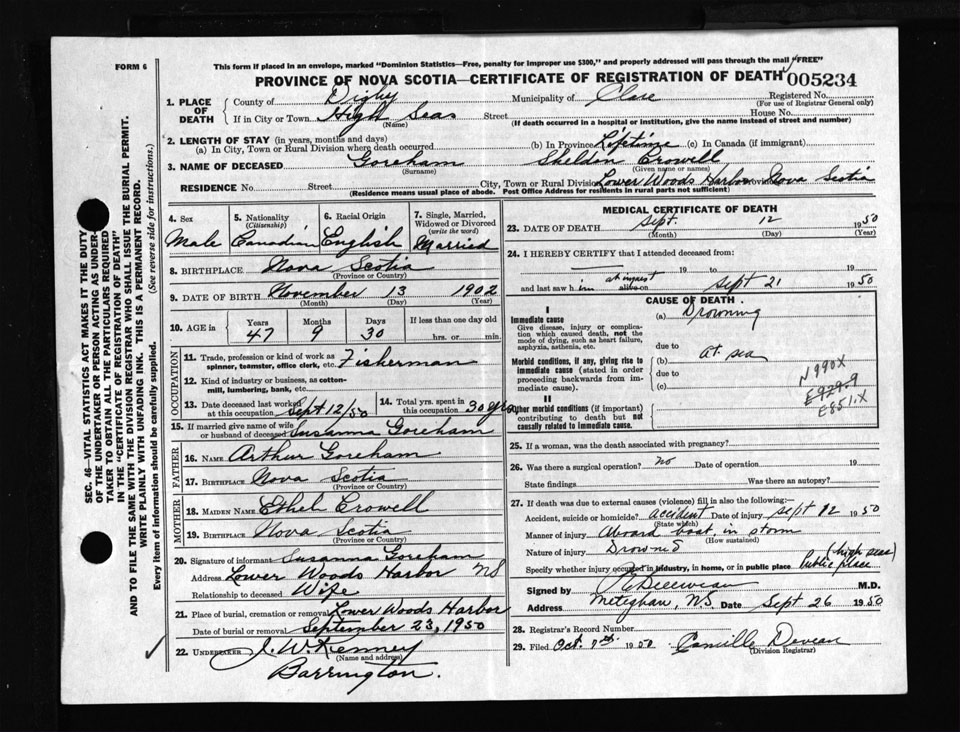 FORM 6
This form if placed in an envelope, marked "Dominion Statistics—Free, penalty for improper use $300," and properly addressed will pass through the mail "FREE"
PROVINCE OF NOVA SCOTIA—CERTIFICATE OF REGISTRATION OF DEATH 005234
1. PLACE OF DEATH County of Digby Municipality of Clare Registered No. (For use of Registrar General only)
If in City or Town High Seas (Name) Street House No.
(If death occurred in a hospital or institution, give the name instead of street and number)
2. LENGTH OF STAY (in years, months and days)
(a) In City, Town or Rural Division where death occurred (b) In Province Lifetime (c) In Canada (if immigrant)
3. NAME OF DECEASED Goreham (Surname) Sheldon Crowell (Given name or names)
RESIDENCE No. Street City, Town or Rural Division Lower Woods Harbor Nova Scotia
(Residence means usual place of abode. Post Office Address for residents in rural parts not sufficient)
4. Sex Male
5. Nationality (Citizenship) Canadian
6. Racial Origin English
7. Single, Married, Widowed or Divorced (write the word) Married
8. BIRTHPLACE Nova Scotia (Province or Country)
9. DATE OF BIRTH November 13 1902 (Month) (Day) (Year)
10. AGE in Years 47 Months 9 Days 30 If less than one day old hrs. or min.
OCCUPATION
11. Trade, profession or kind of work as spinner, teamster, office clerk, etc. Fisherman
12. Kind of industry or business, as cotton-mill, lumbering, bank, etc.
13. Date deceased last worked at this occupation Sept 12/50
14. Total yrs. spent in this occupation 30 yrs
15. If married give name of wife or husband of deceased Susanna Goreham
FATHER
16. Name Arthur Goreham
17. Birthplace Nova Scotia (Province or Country)
MOTHER
18. MAIDEN NAME Ethel Crowell
19. BIRTHPLACE Nova Scotia (Province or Country)
20. Signature of informant Susanna Goreham
Address Lower Woods Harbor NS
Relationship to deceased Wife
21. Place of burial, cremation or removal Lower Woods Harbor
Date of burial or removal September 23, 1950
22. UNDERTAKER J. W Kenney
(Name and address)
Barrington.
MEDICAL CERTIFICATE OF DEATH
23. DATE OF DEATH Sept 12 1950
(Month) (Day) (Year)
24. I HEREBY CERTIFY that I attended deceased from:
19 to 19
and last saw him at inquest alive on Sept 21 1950
CAUSE OF DEATH
I
Immediate cause (a) Drowning
Give disease, injury or complication which caused death, not the mode of dying, such as heart failure, asphyxia, asthenia, etc.
due to
Morbid conditions, if any, giving rise to immediate cause (stated in order proceeding backwards from immediate cause).
(b) at sea
due to
(c)
N990X
E929.9
E851.X
II
Other morbid conditions (if important) contributing to death but not causally related to immediate cause.
25. If a woman, was the death associated with pregnancy?
26. Was there a surgical operation? no Date of operation 19
State findings Was there an autopsy?
27. If death was due to external causes (violence) fill in also the following:—
Accident, suicide or homicide? accident (State which) Date of injury Sept 12 1950
Manner of injury Aboard boat, in storm
(How sustained)
Nature of injury Drowned
Specify whether injury occurred in industry, in home, or in public place Public place (high seas)
Signed by M.D.
Address Meteghan, NS. Date Sept 26 1950
28. Registrar's Record Number
29. Filed Oct. 9th 1950 Camille Deveau
(Division Registrar)
SEC. 46—VITAL STATISTICS ACT MAKES IT THE DUTY
OF THE UNDERTAKER OR PERSON ACTING AS UNDER-
TAKER TO OBTAIN ALL THE PARTICULARS REQUIRED
IN THE "CERTIFICATE OF REGISTRATION OF DEATH"
AND TO FILE THE SAME WITH THE DIVISION REGISTRAR WHO SHALL ISSUE THE BURIAL PERMIT.
WRITE PLAINLY WITH UNFADING INK. THIS IS A PERMANENT RECORD.
Every item of information should be carefully supplied. (See reverse side for instructions.)